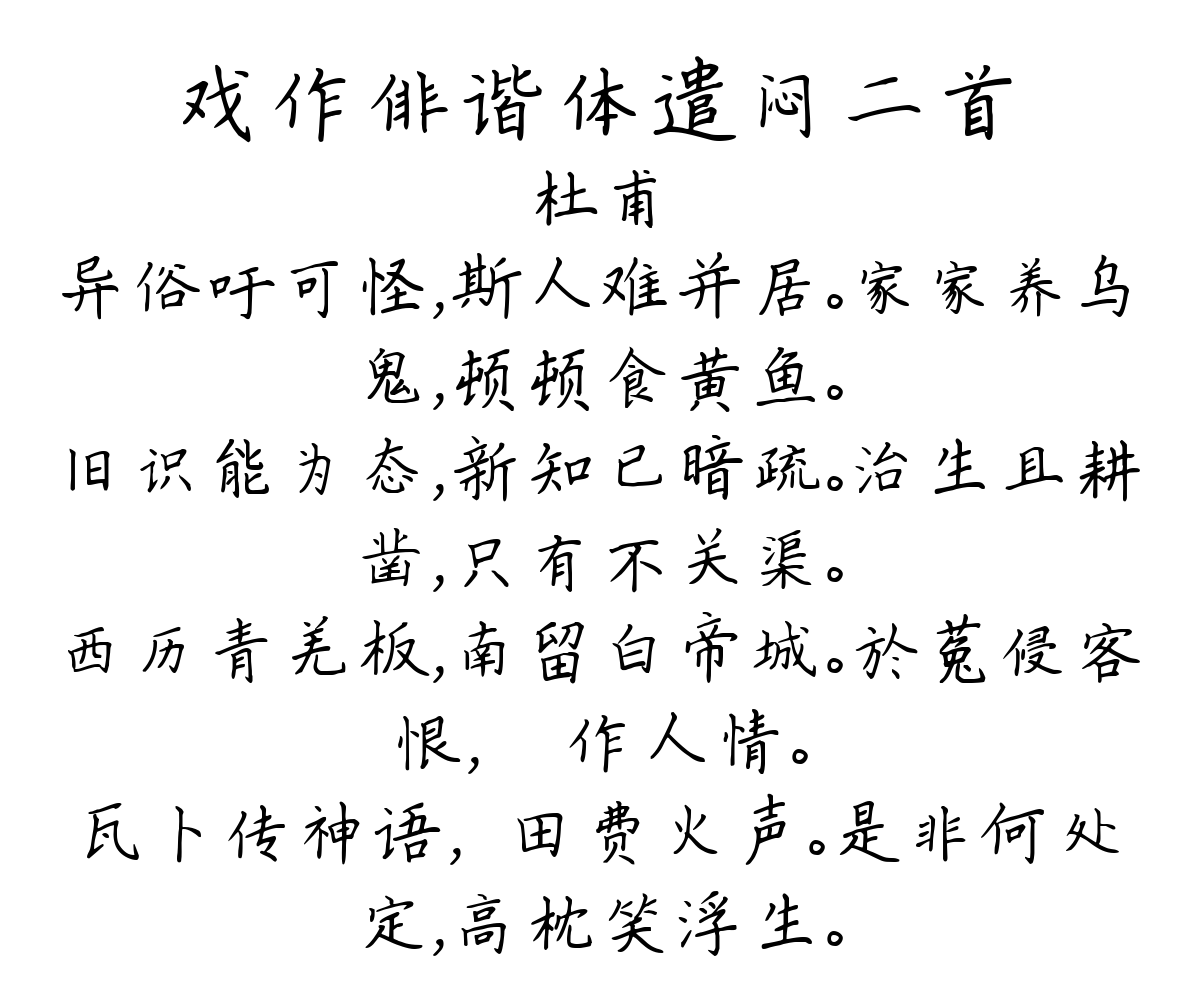 戏作俳谐体遣闷二首
杜甫
异俗吁可怪,斯人难并居。家家养乌
鬼,顿顿食黄鱼。
旧识能为态,新知已暗疏。治生且耕
凿,只有不关渠。
西历青羌板,南留白帝城。於菟侵客
恨, 作人情。
瓦卜传神语, 田费火声。是非何处
定,高枕笑浮生。